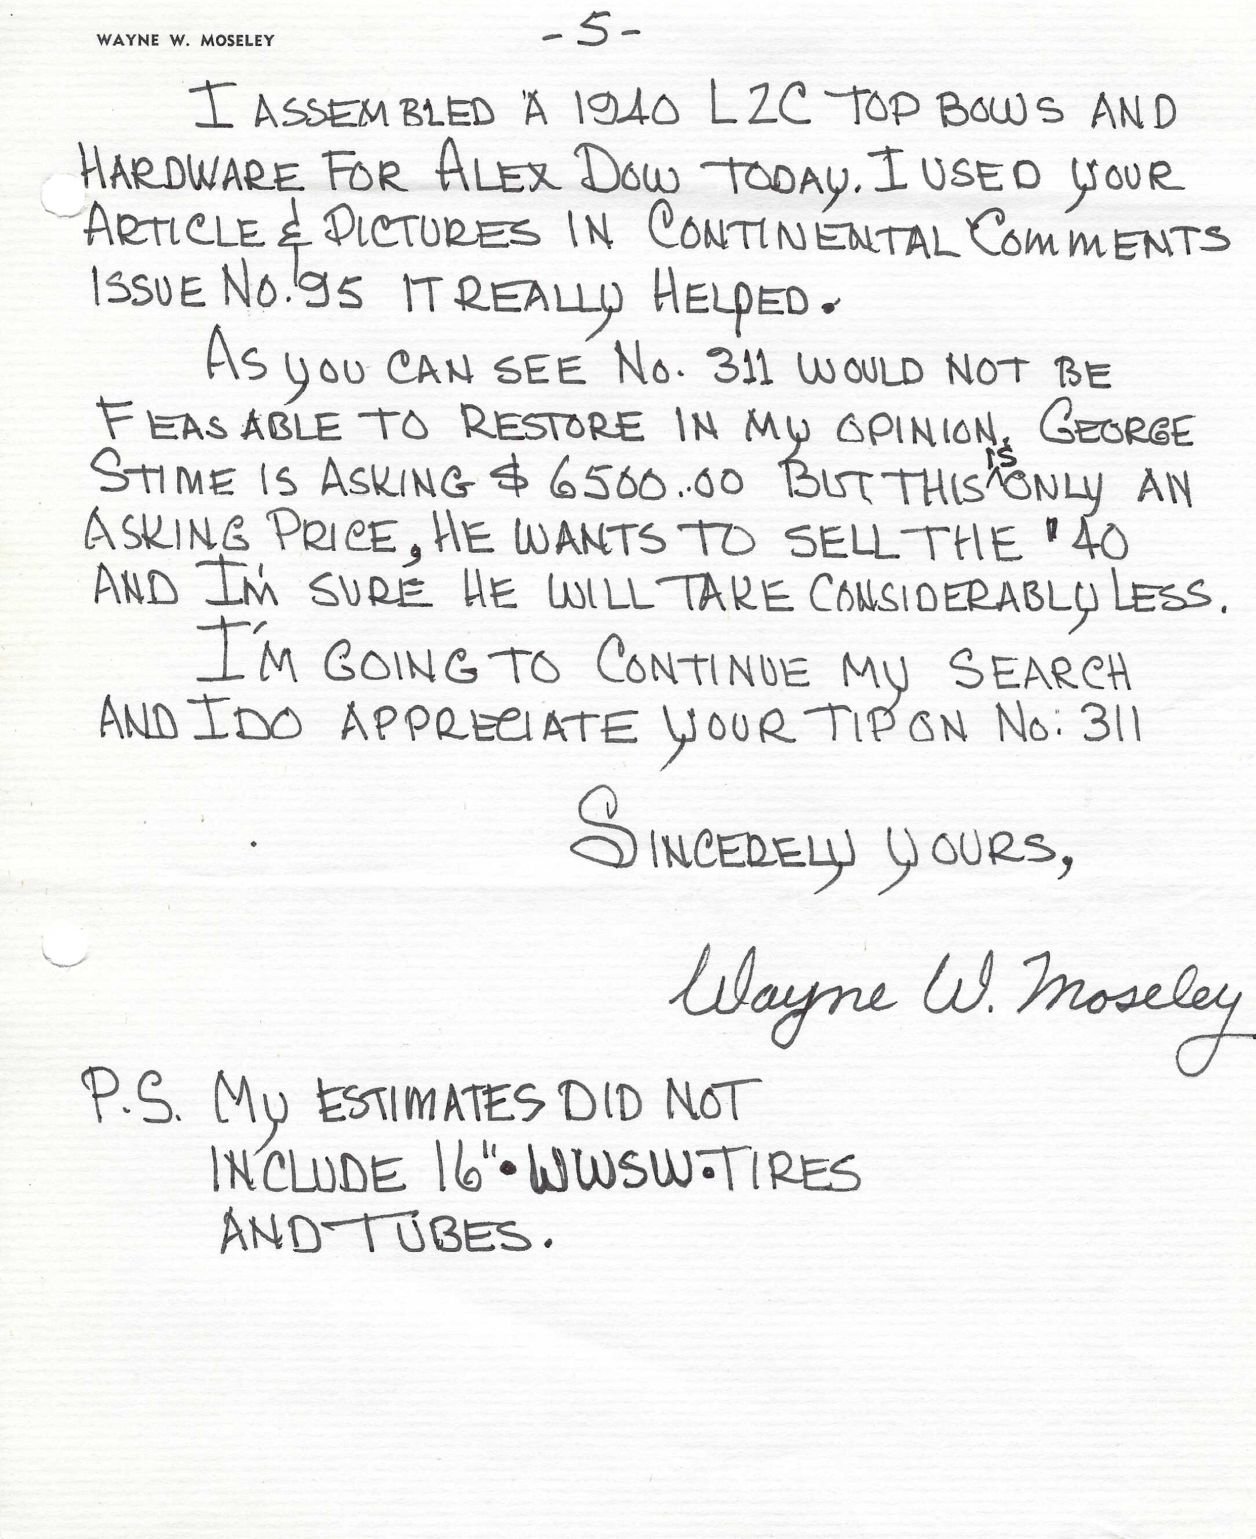 WAYNE W. MOSELEY
-5-
I ASSEMBLED A 1940 LZC TOP BOWS AND
HARDWARE FOR ALEX DOW TODAY. I USED YOUR
ARTICLE & PICTURES IN CONTINENTAL COMMENTS
ISSUE NO. 95 IT REALLY HELPED.
AS YOU CAN SEE NO. 311 WOULD NOT BE
FEASABLE TO RESTORE IN MY OPINION. GEORGE
STIME IS ASKING $6500.00 BUT THIS IS ONLY AN
ASKING PRICE, HE WANTS TO SELL THE '40
AND I'M SURE HE WILL TAKE CONSIDERABLY LESS.
I'M GOING TO CONTINUE MY SEARCH
AND I DO APPRECIATE YOUR TIP ON NO. 311
SINCERELY YOURS,
Wayne W. Moseley
P.S. MY ESTIMATES DID NOT
INCLUDE 16"•WWSW•TIRES
AND TUBES.